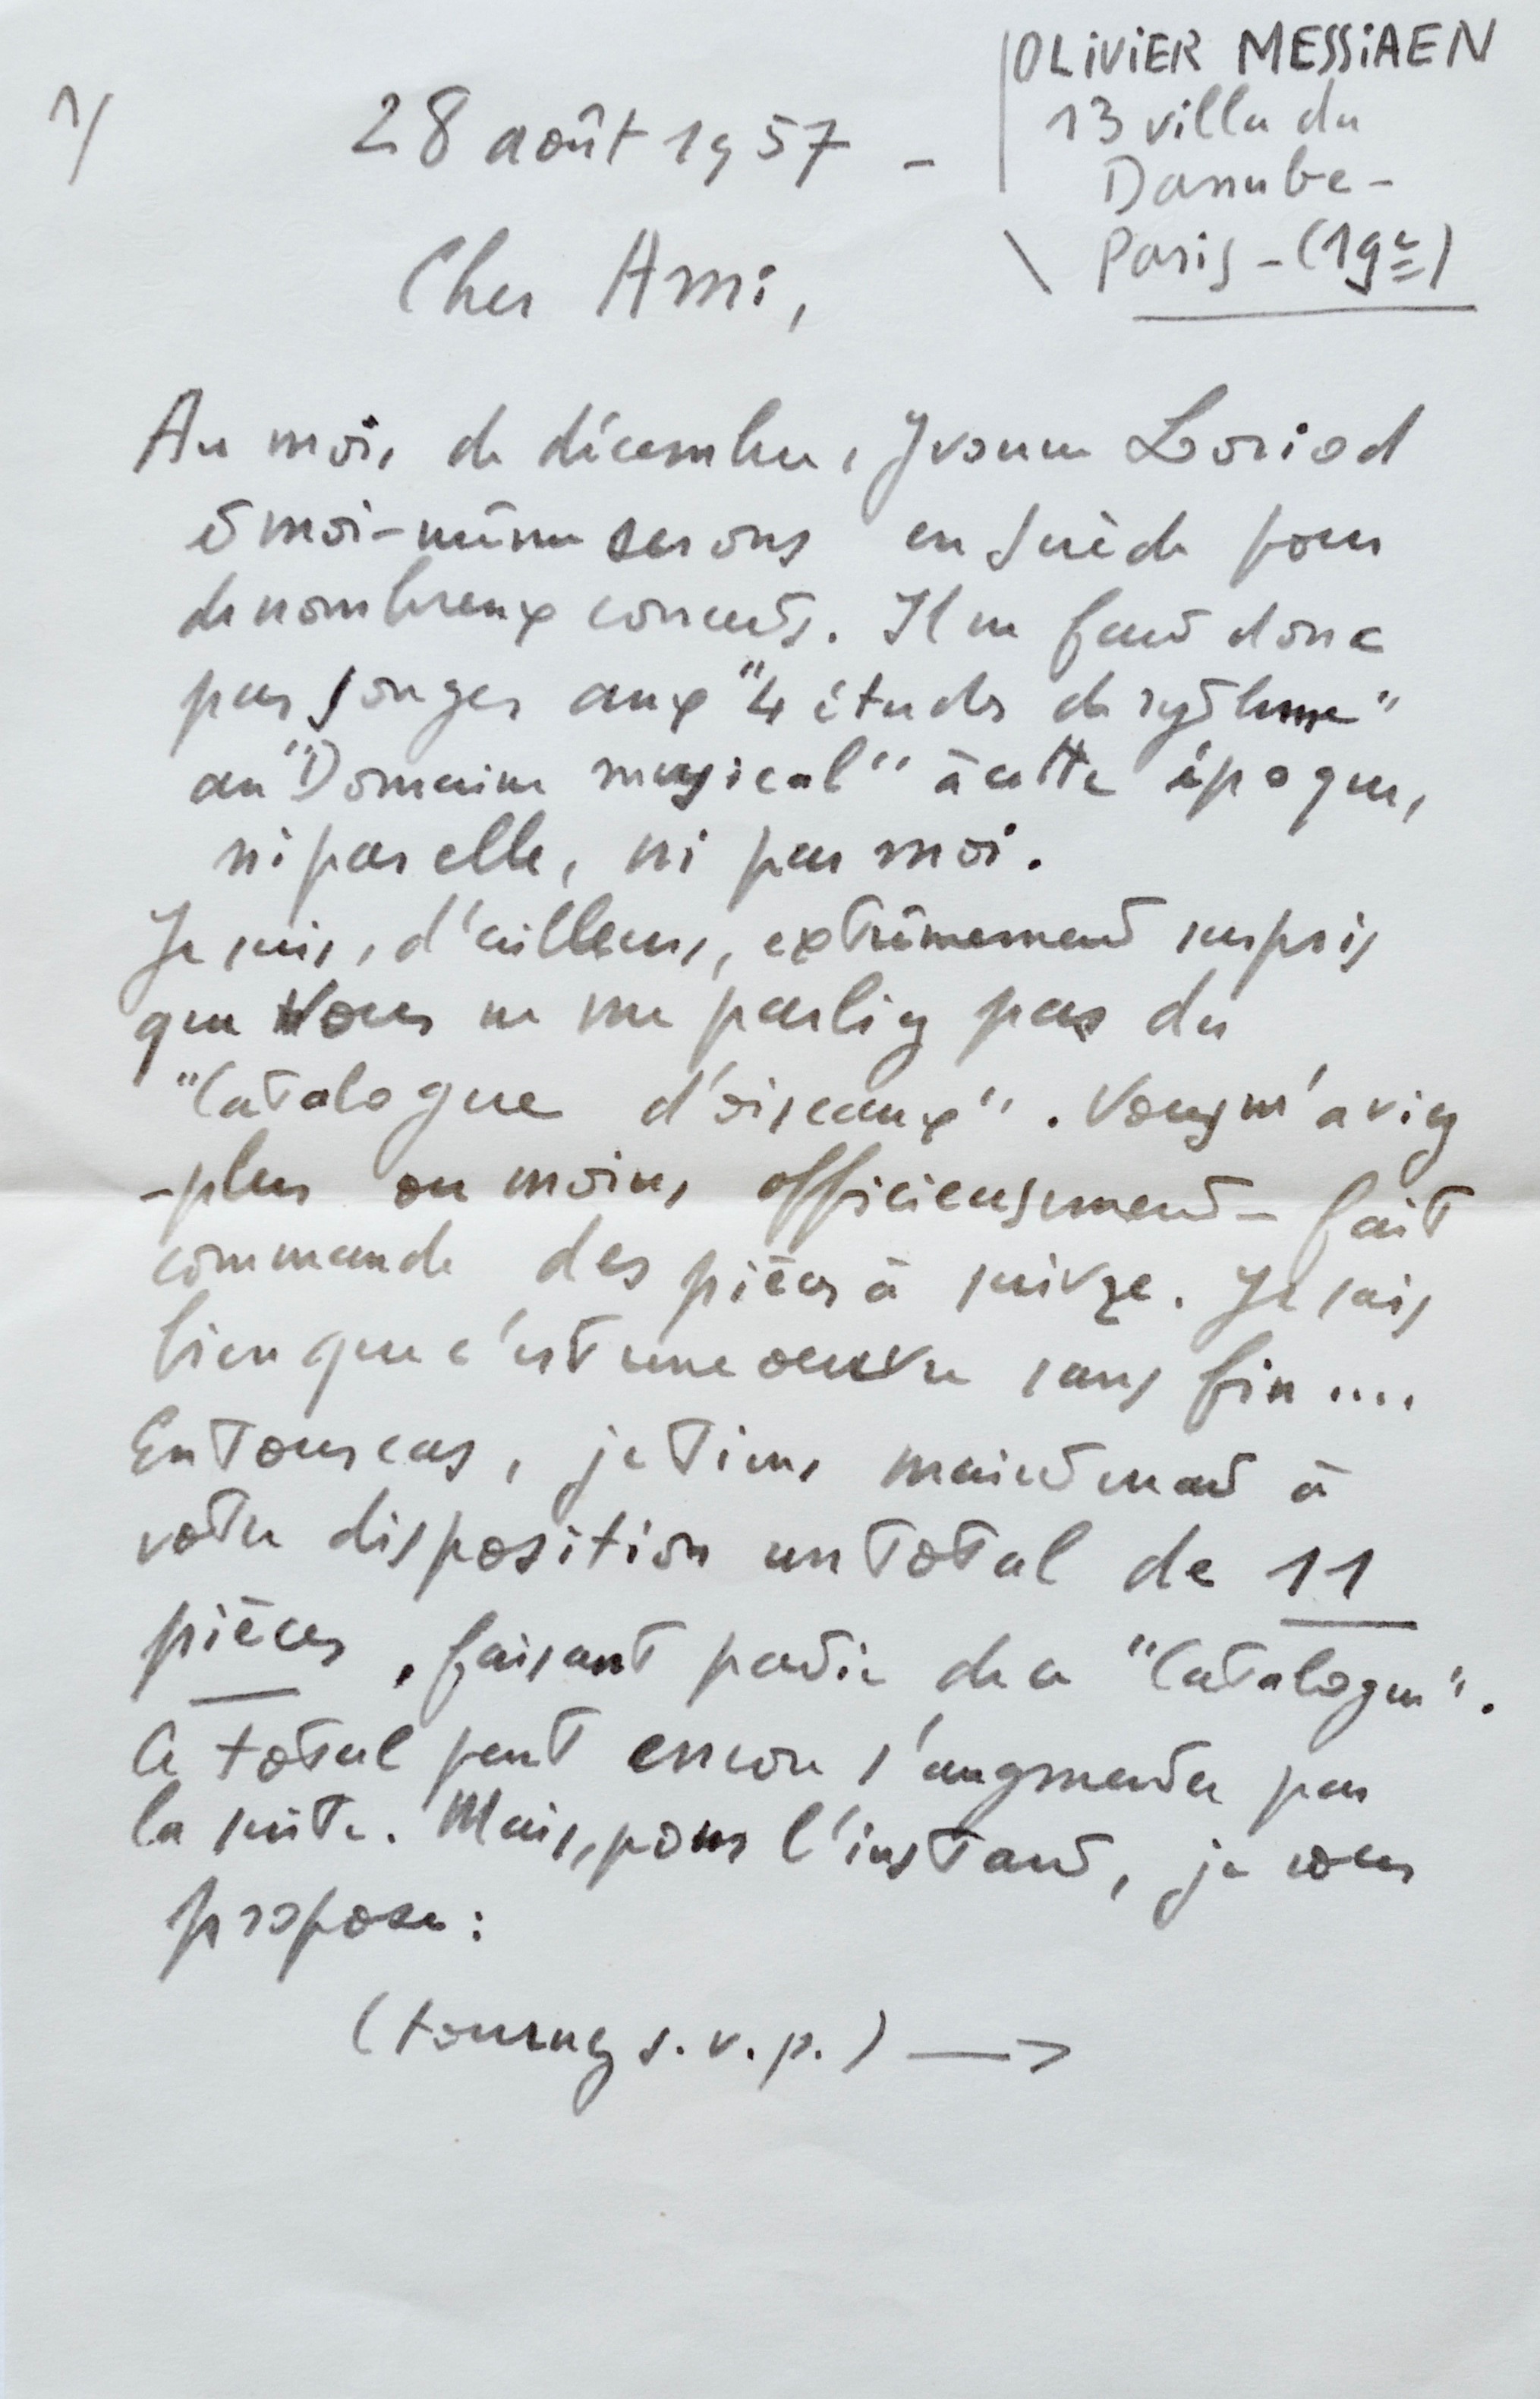 OLIVIER MESSIAEN
13 villa du
Danube -
Paris - (19e)
1/
28 août 1957 -
Cher Ami,
Au mois de décembre, Yvonne Loriod
et moi-même serons en Suède pour
de nombreux concerts. Il ne faut donc
pas songer aux "4 études de rythme"
au "Domaine musical" à cette époque,
ni par elle, ni par moi.
Je suis, d'ailleurs, extrêmement surpris
que Vous ne me parliez pas du
"Catalogue d'oiseaux". Vous m'aviez
- plus ou moins officieusement - fait
commande des pièces à suivre. Je sais
bien que c'est une oeuvre sans fin....
En tous cas, je tiens maintenant à
votre disposition un total de 11
pièces, faisant partie de ce "Catalogue".
Ce total peut encore s'augmenter par
la suite. Mais, pour l'instant, je vous
propose :
(tournez s.v.p.) →